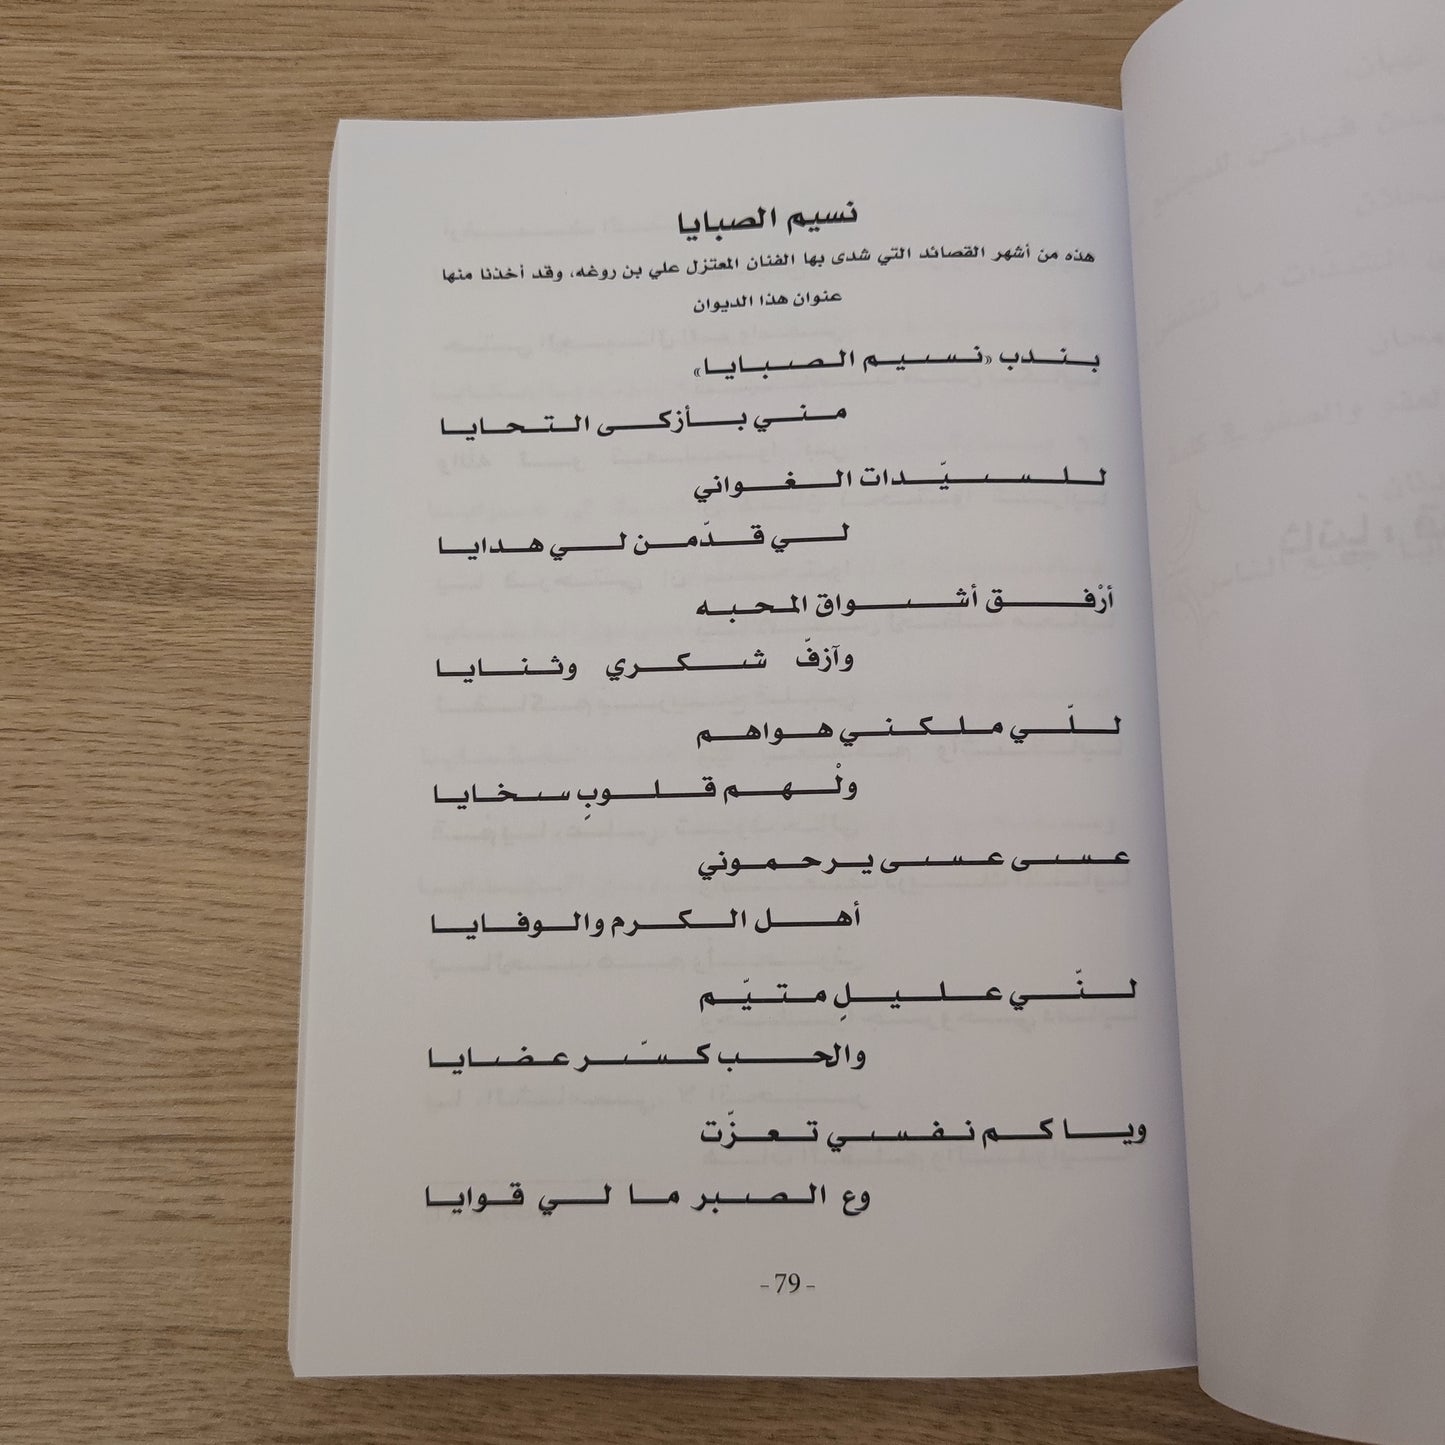 نسيم الصبايا
هذه من أشهر القصائد التي شدى بها الفنان المعتزل علي بن روغه، وقد أخذنا منها
عنوان هذا الديوان
بندب «نسيم الصبايا»
مني بأزكى التحايا
للسيّدات الغواني
لي قدّمن لي هدايا
أرْفق أشواق المحبه
وآزفّ شكري وثنايا
للّي ملكني هواهم
ولْهم قلوبِ سخايا
عسى عسى يرحموني
أهل الكرم والوفايا
لنّي عليلِ متيّم
والحب كسّر عضايا
ويا كم نفسي تعزّت
وع الصبر ما لي قوايا
- 79 -